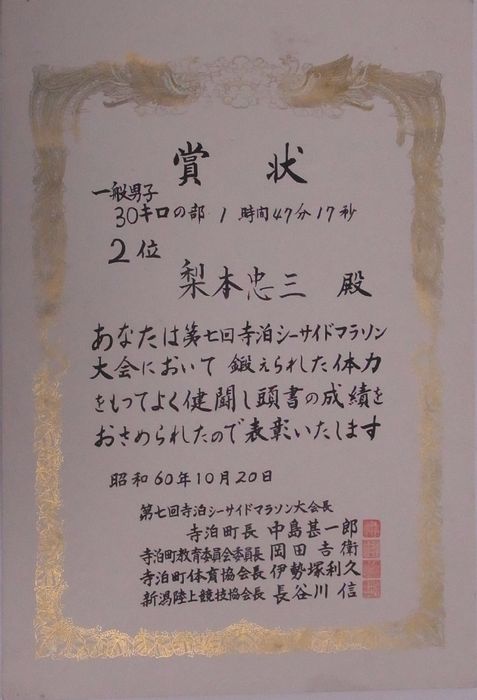 賞状
一般男子
30キロの部 1時間47分17秒
2位
梨本忠三 殿
あなたは第七回寺泊シーサイドマラソン
大会において 鍛えられした体力
をもってよく健闘し頭書の成績を
おさめられたので表彰いたします
昭和60年10月20日
第七回寺泊シーサイドマラソン大会長
寺泊町長 中島甚一郎
寺泊町教育委員会委員長 岡田吉衛
寺泊町体育協会長 伊勢塚利久
新潟陸上競技協会長 長谷川信